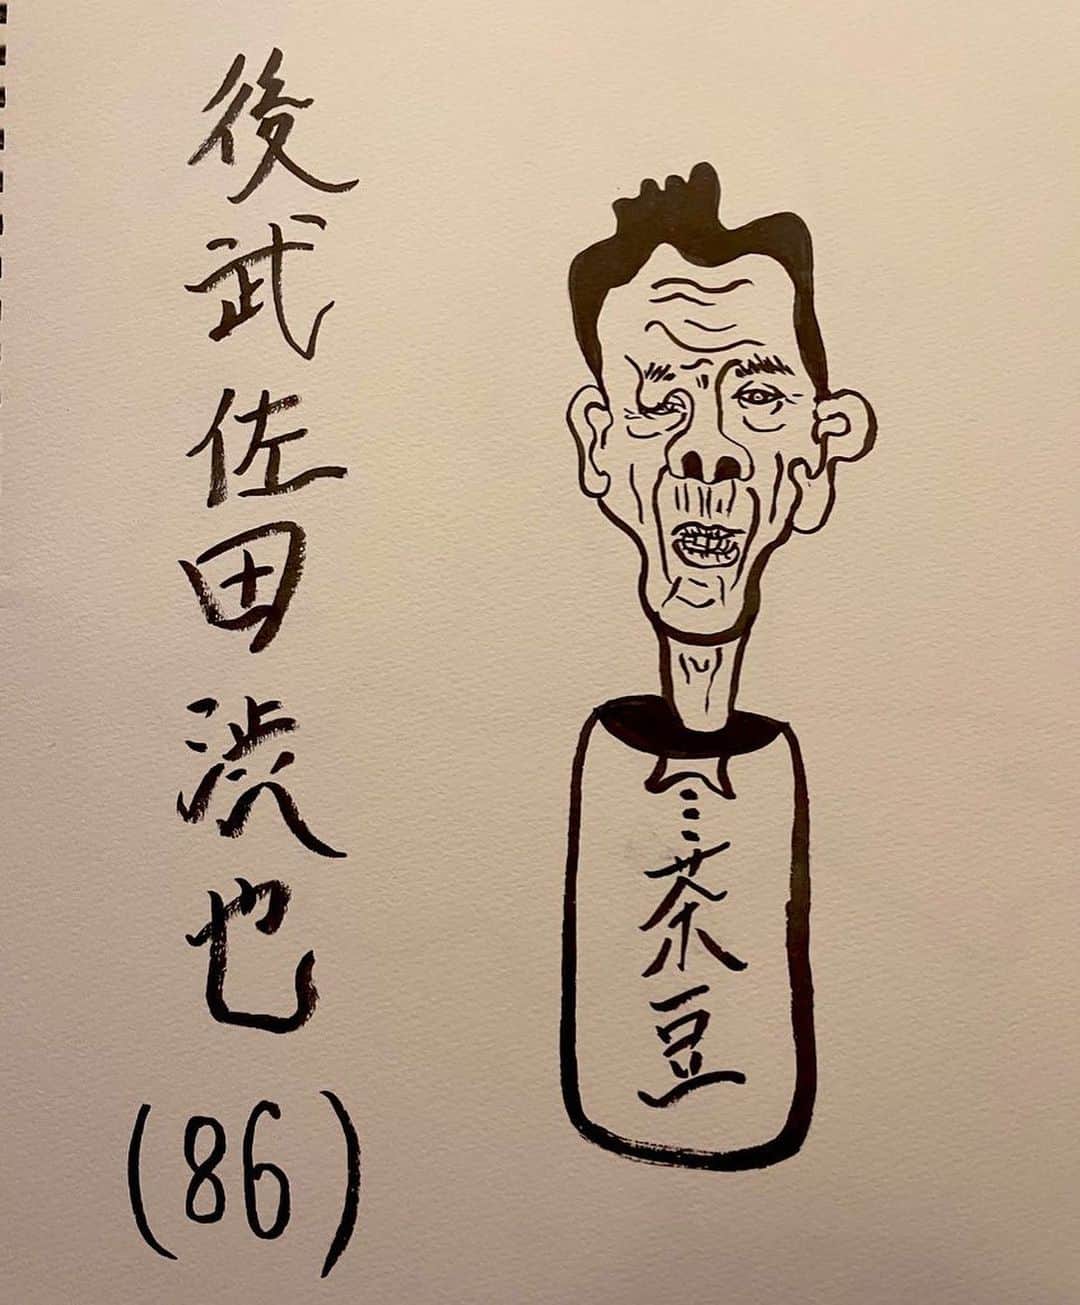 後武佐田渋也
(86)
茶豆